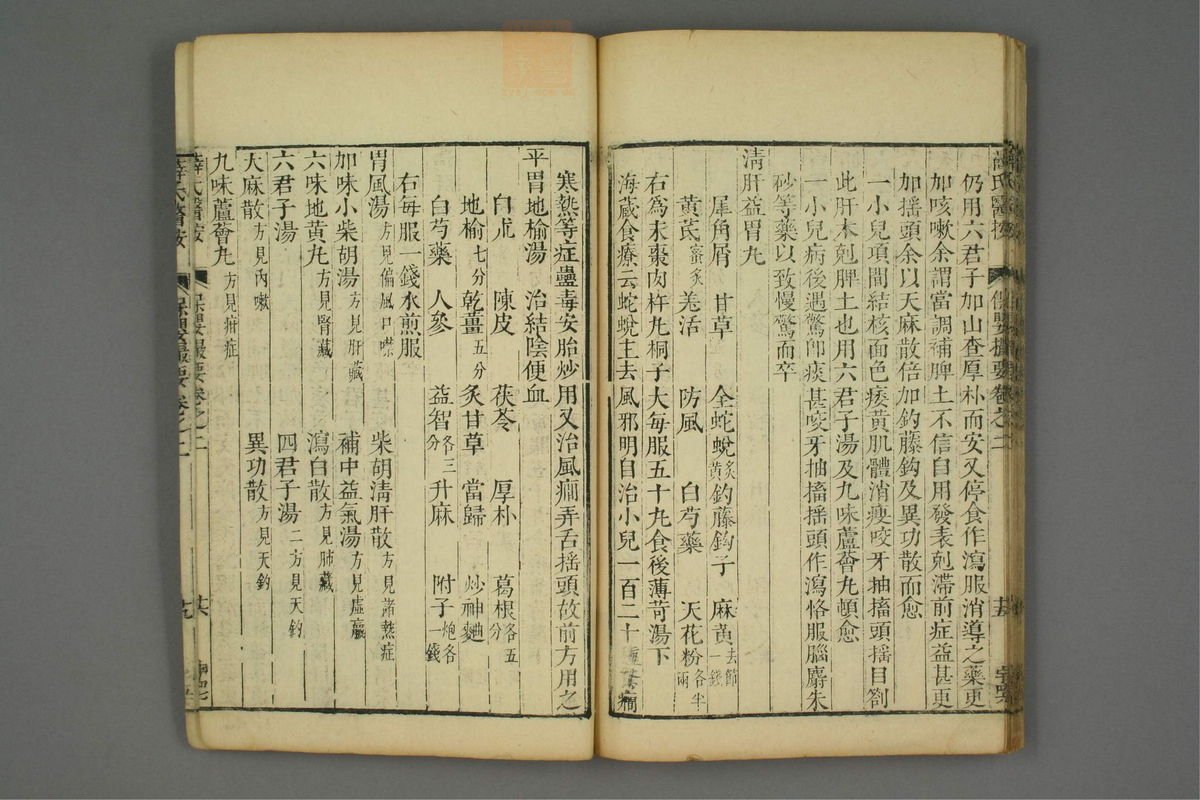 薛氏醫按 保嬰撮要卷之二
仍用六君子加山查厚朴而安又停食作瀉服消導之藥更
加咳嗽余謂當調補脾土不信自用發表剋滯前症益甚更
加揺頭余以天麻散倍加釣藤鈎及異功散而愈
一小兒項間結核面色痿黄肌體消瘦咬牙抽搐頭揺目劄
此肝木剋脾土也用六君子湯及九味蘆薈丸頓愈
一小兒病後遇驚即痰甚咬牙抽搐揺頭作瀉恪服腦麝朱
砂等藥以致慢驚而卒
清肝益胃丸
犀角屑 甘草 全蛇蛻炙黄 釣藤鈎子 麻黄去節一錢
黄芪蜜炙 羗活 防風 白芍藥 天花粉各半兩
右為末棗肉杵丸桐子大每服五十丸食後薄荷湯下
海藏食療云蛇蛻主去風邪明自治小兒一百二十 癎
寒熱等症蠱毒安胎炒用又治風癎弄舌揺頭故前方用之
平胃地榆湯 治結陰便血
白朮 陳皮 茯苓 厚朴 葛根各五分
地榆七分 乾薑五分 炙甘草 當歸 炒神麯
白芍藥 人參 益智各三分 升麻 附子炮各一錢
右每服一錢水煎服
胃風湯方見偏風口噤 柴胡清肝散方見諸熱症
加味小柴胡湯方見肝臟 補中益氣湯方見虛羸
六味地黄丸方見腎臟 瀉白散方見肺臟
六君子湯 四君子湯二方見天釣
大麻散方見內嗽 異功散方見天釣
九味蘆薈丸方見疳症
薛氏醫按 保嬰撮要卷之二
薛氏醫按 保嬰撮要卷之二